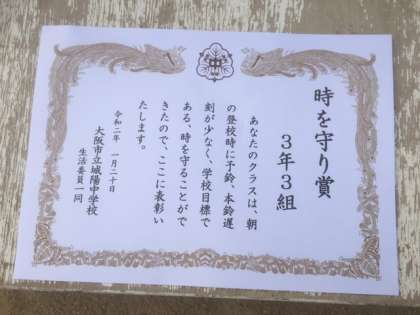 中
時を守り賞
3年3組
あなたのクラスは、朝
の登校時に予鈴、本鈴遅
刻が少なく、学校目標で
ある、時を守ることがで
きたので、ここに表彰い
たします。
令和二年 一月二十日
大阪市立城陽中学校
生活委員一同